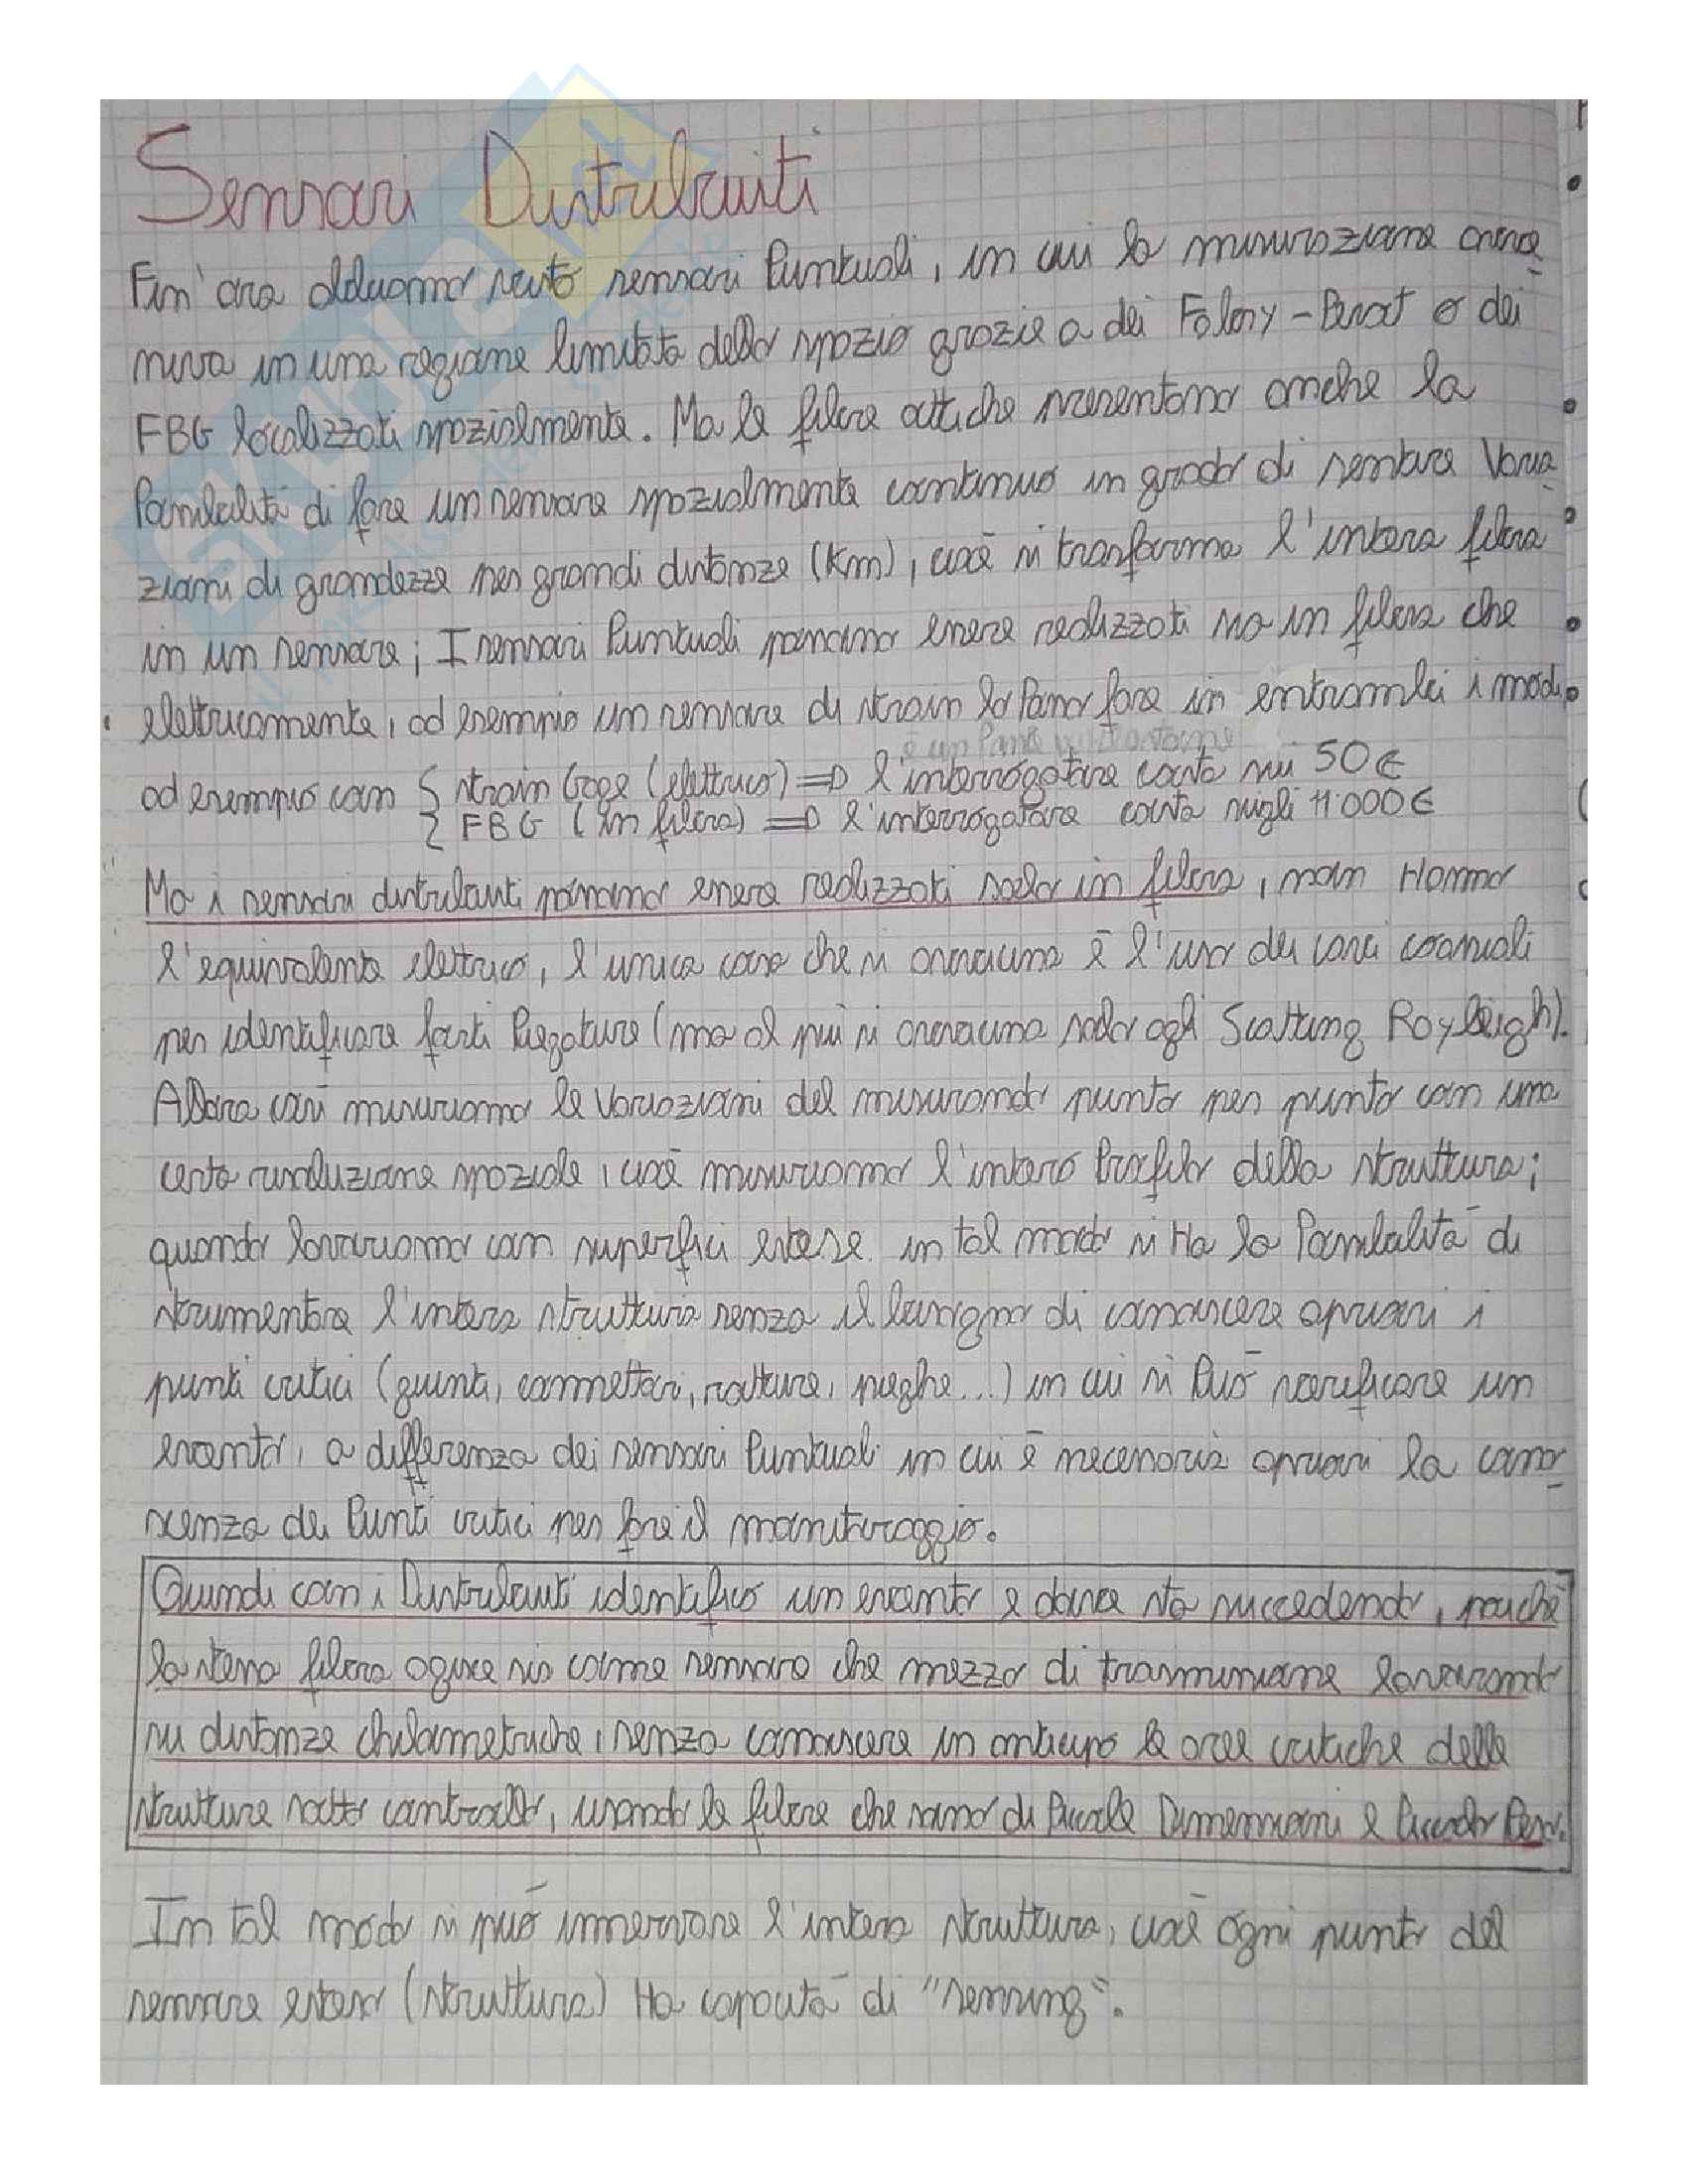 Sensori Distribuiti
Fin'ora abbiamo visto sensori Puntuali, in cui la misurazione avve-
niva in una regione limitata dello spazio grazie a dei Fabry-Perot o dei
FBG localizzati spazialmente. Ma le fibre ottiche presentano anche la
Possibilità di fare un sensore spazialmente continuo in grado di sentire Varia-
zioni di grandezze per grandi distanze (Km), cioè si trasforma l'intera fibra
in un sensore; I sensori Puntuali possono essere realizzati sia in fibra che
elettricamente, ad esempio un sensore di strain lo Posso fare in entrambi i modi
ad esempio con { strain Gage (elettrico) => l'interrogatore costa sui 50€
{ FBG (in fibra) => l'interrogatore costa sugli 11.000€
Ma i sensori distribuiti possono essere realizzati solo in fibra, non Hanno
l'equivalente elettrico, l'unica cosa che si avvicina è l'uso dei cavi coassiali
per identificare forti Piegature (ma al più si avvicina solo agli Scatting Rayleigh).
Allora così misuriamo le Variazioni del misurando punto per punto con una
certa risoluzione spaziale, cioè misuriamo l'intero Profilo della struttura;
quando lavoriamo con superfici estese in tal modo si Ha la Possibilità di
strumentare l'intera struttura senza il bisogno di conoscere apriori i
punti critici (giunti, connettori, rotture, pieghe...) in cui si Può verificare un
evento, a differenza dei sensori Puntuali in cui è necessaria apriori la cono-
scenza dei Punti critici per fare il monitoraggio.
Quindi con i Distribuiti identifico un evento e dove sta succedendo, poiché
la stessa fibra agisce sia come sensore che mezzo di trasmissione lavorando
su distanze chilometriche, senza conoscere in anticipo le aree critiche delle
strutture sotto controllo, usando le fibre che sono di Piccole Dimensioni e Piccolo Peso.
In tal modo si può innervare l'intera struttura, cioè ogni punto del
sensore esteso (struttura) Ha capacità di "sensing".